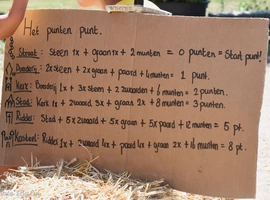 Het punten punt.
Straat: Steen 1x + graan 1x + 2 munten = 0 punten = Start punt!
Boerderij: 2x steen + 2x graan + paard + 4 munten = 1 punt.
Kerk: Boerderij 1x + 3x steen + 2 zwaarden + 6 munten = 2 punten.
Stad: Kerk 1x + 2 zwaard, 3x + graan 2x + 8 munten = 3 punten.
Ridder: Stad + 5x zwaard + 5x graan + 5x paard + 12 munten = 5 pt.
Kasteel: Ridder 1x + zwaard 4x + paard 4x + graan 2x + 16 munten = 8 pt.